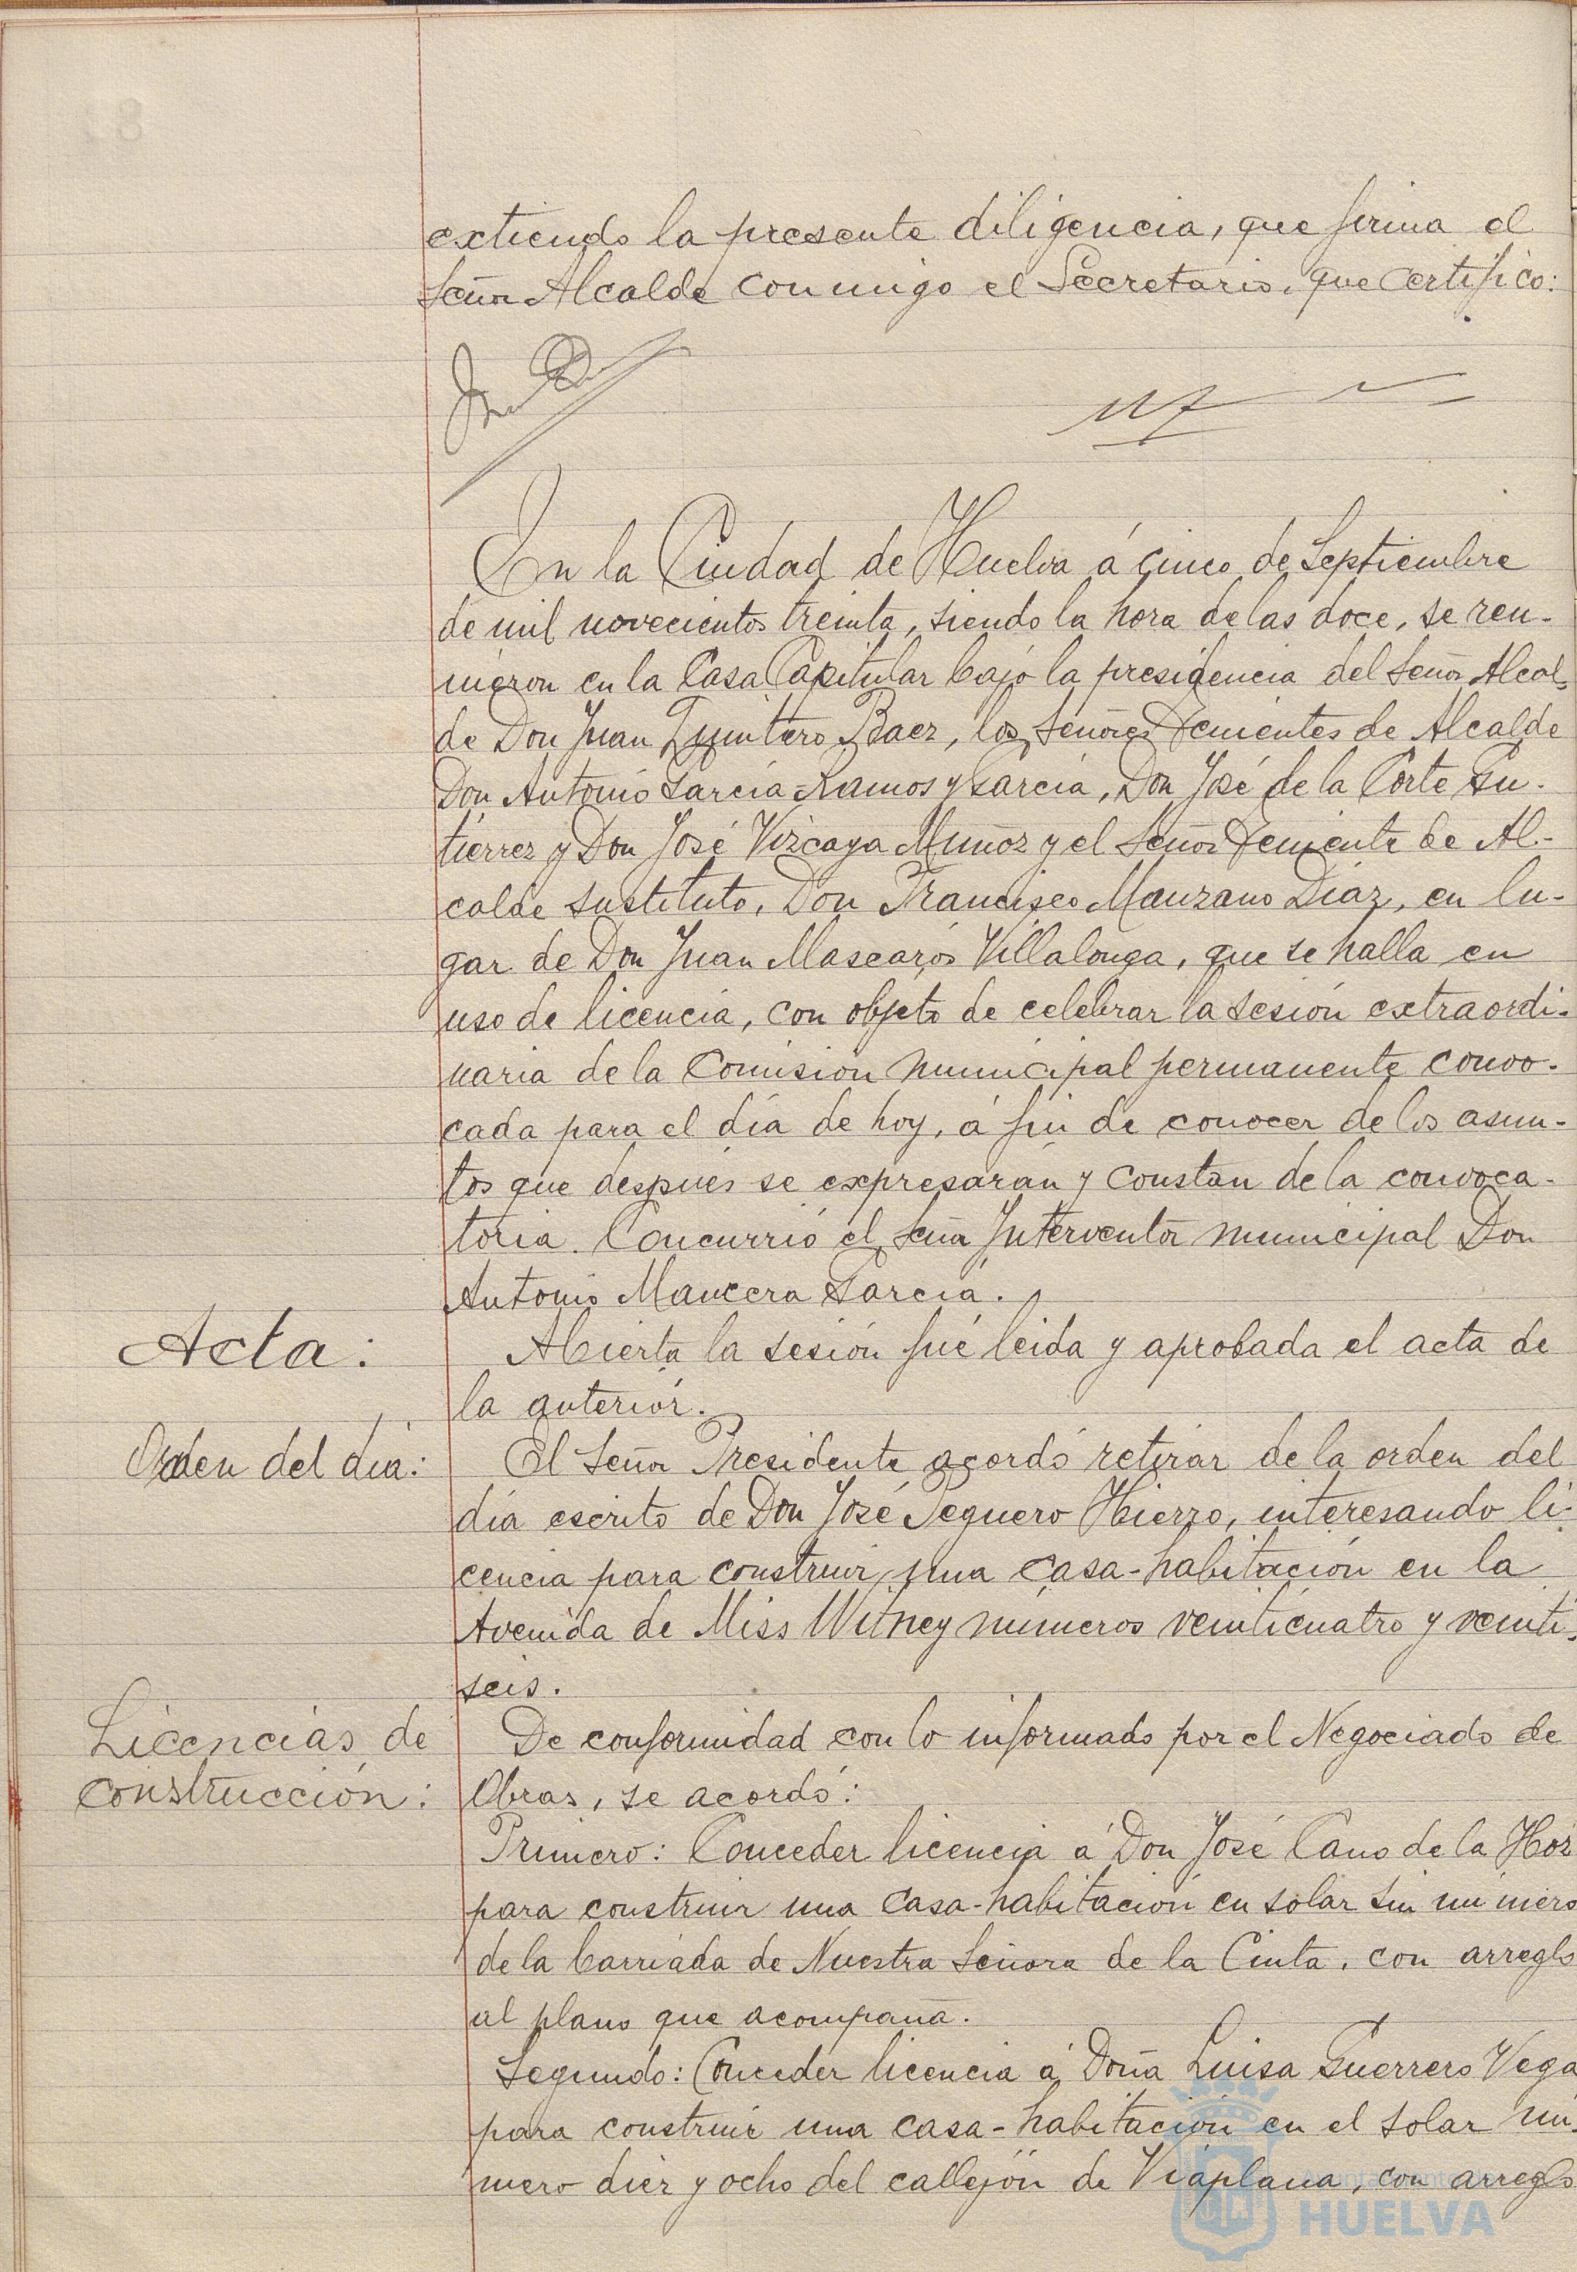 extiendo la presente diligencia, que firma el
Señor Alcalde conmigo el Secretario, que certifico:
En la Ciudad de Huelva á cinco de Septiembre
de mil novecientos treinta, siendo la hora de las doce, se reu-
nieron en la Casa Capitular bajo la presidencia del Señor Alcal-
de Don Juan Quintero Baez, los Señores Tenientes de Alcalde
Don Antonio García-Ramos y García, Don José de la Corte Gu-
tiérrez y Don José Vizcaya Muñoz y el Señor Teniente de Al-
calde sustituto, Don Francisco Manzano Díaz, en lu-
gar de Don Juan Mascarós Villalonga, que se halla en
uso de licencia, con objeto de celebrar la sesión extraordi-
naria de la Comisión municipal permanente convo-
cada para el día de hoy, á fin de conocer de los asun-
tos que después se expresarán y constan de la convoca-
toria. Concurrió el Señor Interventor municipal Don
Antonio Mancera García.
Acta:
Abierta la sesión fué leida y aprobada el acta de
la anterior.
Orden del día:
El Señor Presidente acordó retirar de la orden del
día escrito de Don José Peguero Hierro, interesando li-
cencia para construir una casa-habitación en la
Avenida de Miss Witney números veinticuatro y veinti-
seis.
Licencias de
construcción:
De conformidad con lo informado por el Negociado de
Obras, se acordó:
Primero: Conceder licencia á Don José Cano de la Hoz
para construir una casa-habitación en solar sin número
de la barriada de Nuestra Señora de la Cinta, con arreglo
al plano que acompaña.
Segundo: Conceder licencia á Doña Luisa Guerrero Vega
para construir una casa-habitación en el solar nú-
mero diez y ocho del callejón de Viaplana, con arreglo
Ayuntamiento de
HUELVA